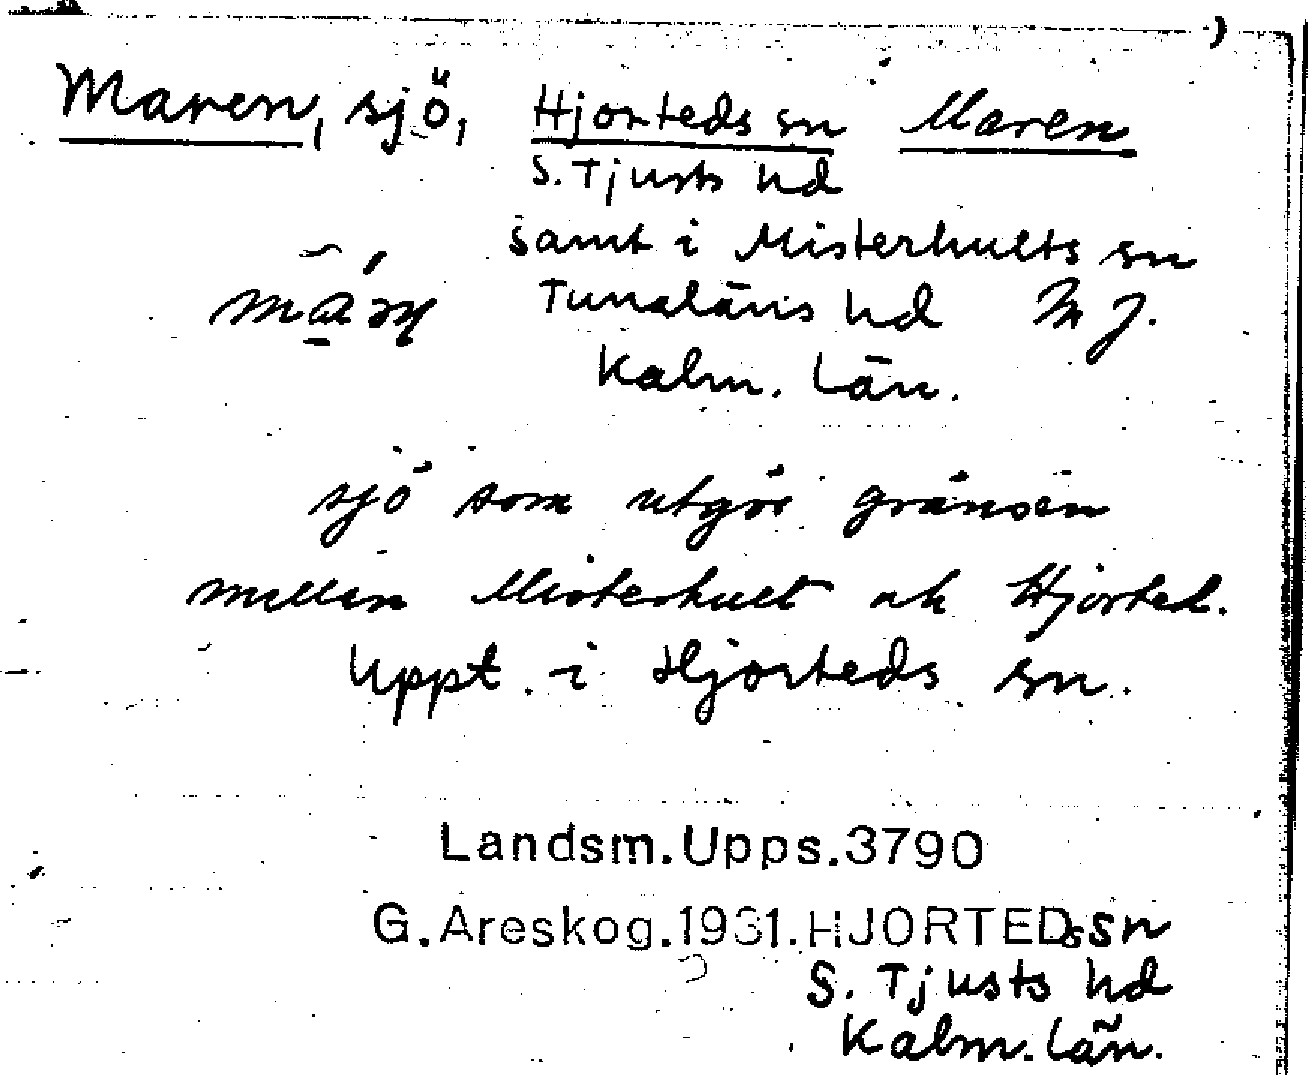 Maren, sjö, Hjorteds sn Maren
S. Tjusts hd
samt i Misterhults sn
Tunaläns hd M J.
Kalm. Län.
sjö som utgör gränsen
mellan Misterhult ock Hjorted.
Uppt. i Hjorteds sn.
Landsm. Upps. 3790
G. Areskog. 1931. HJORTEDs sn
S. Tjusts hd
Kalm. län.